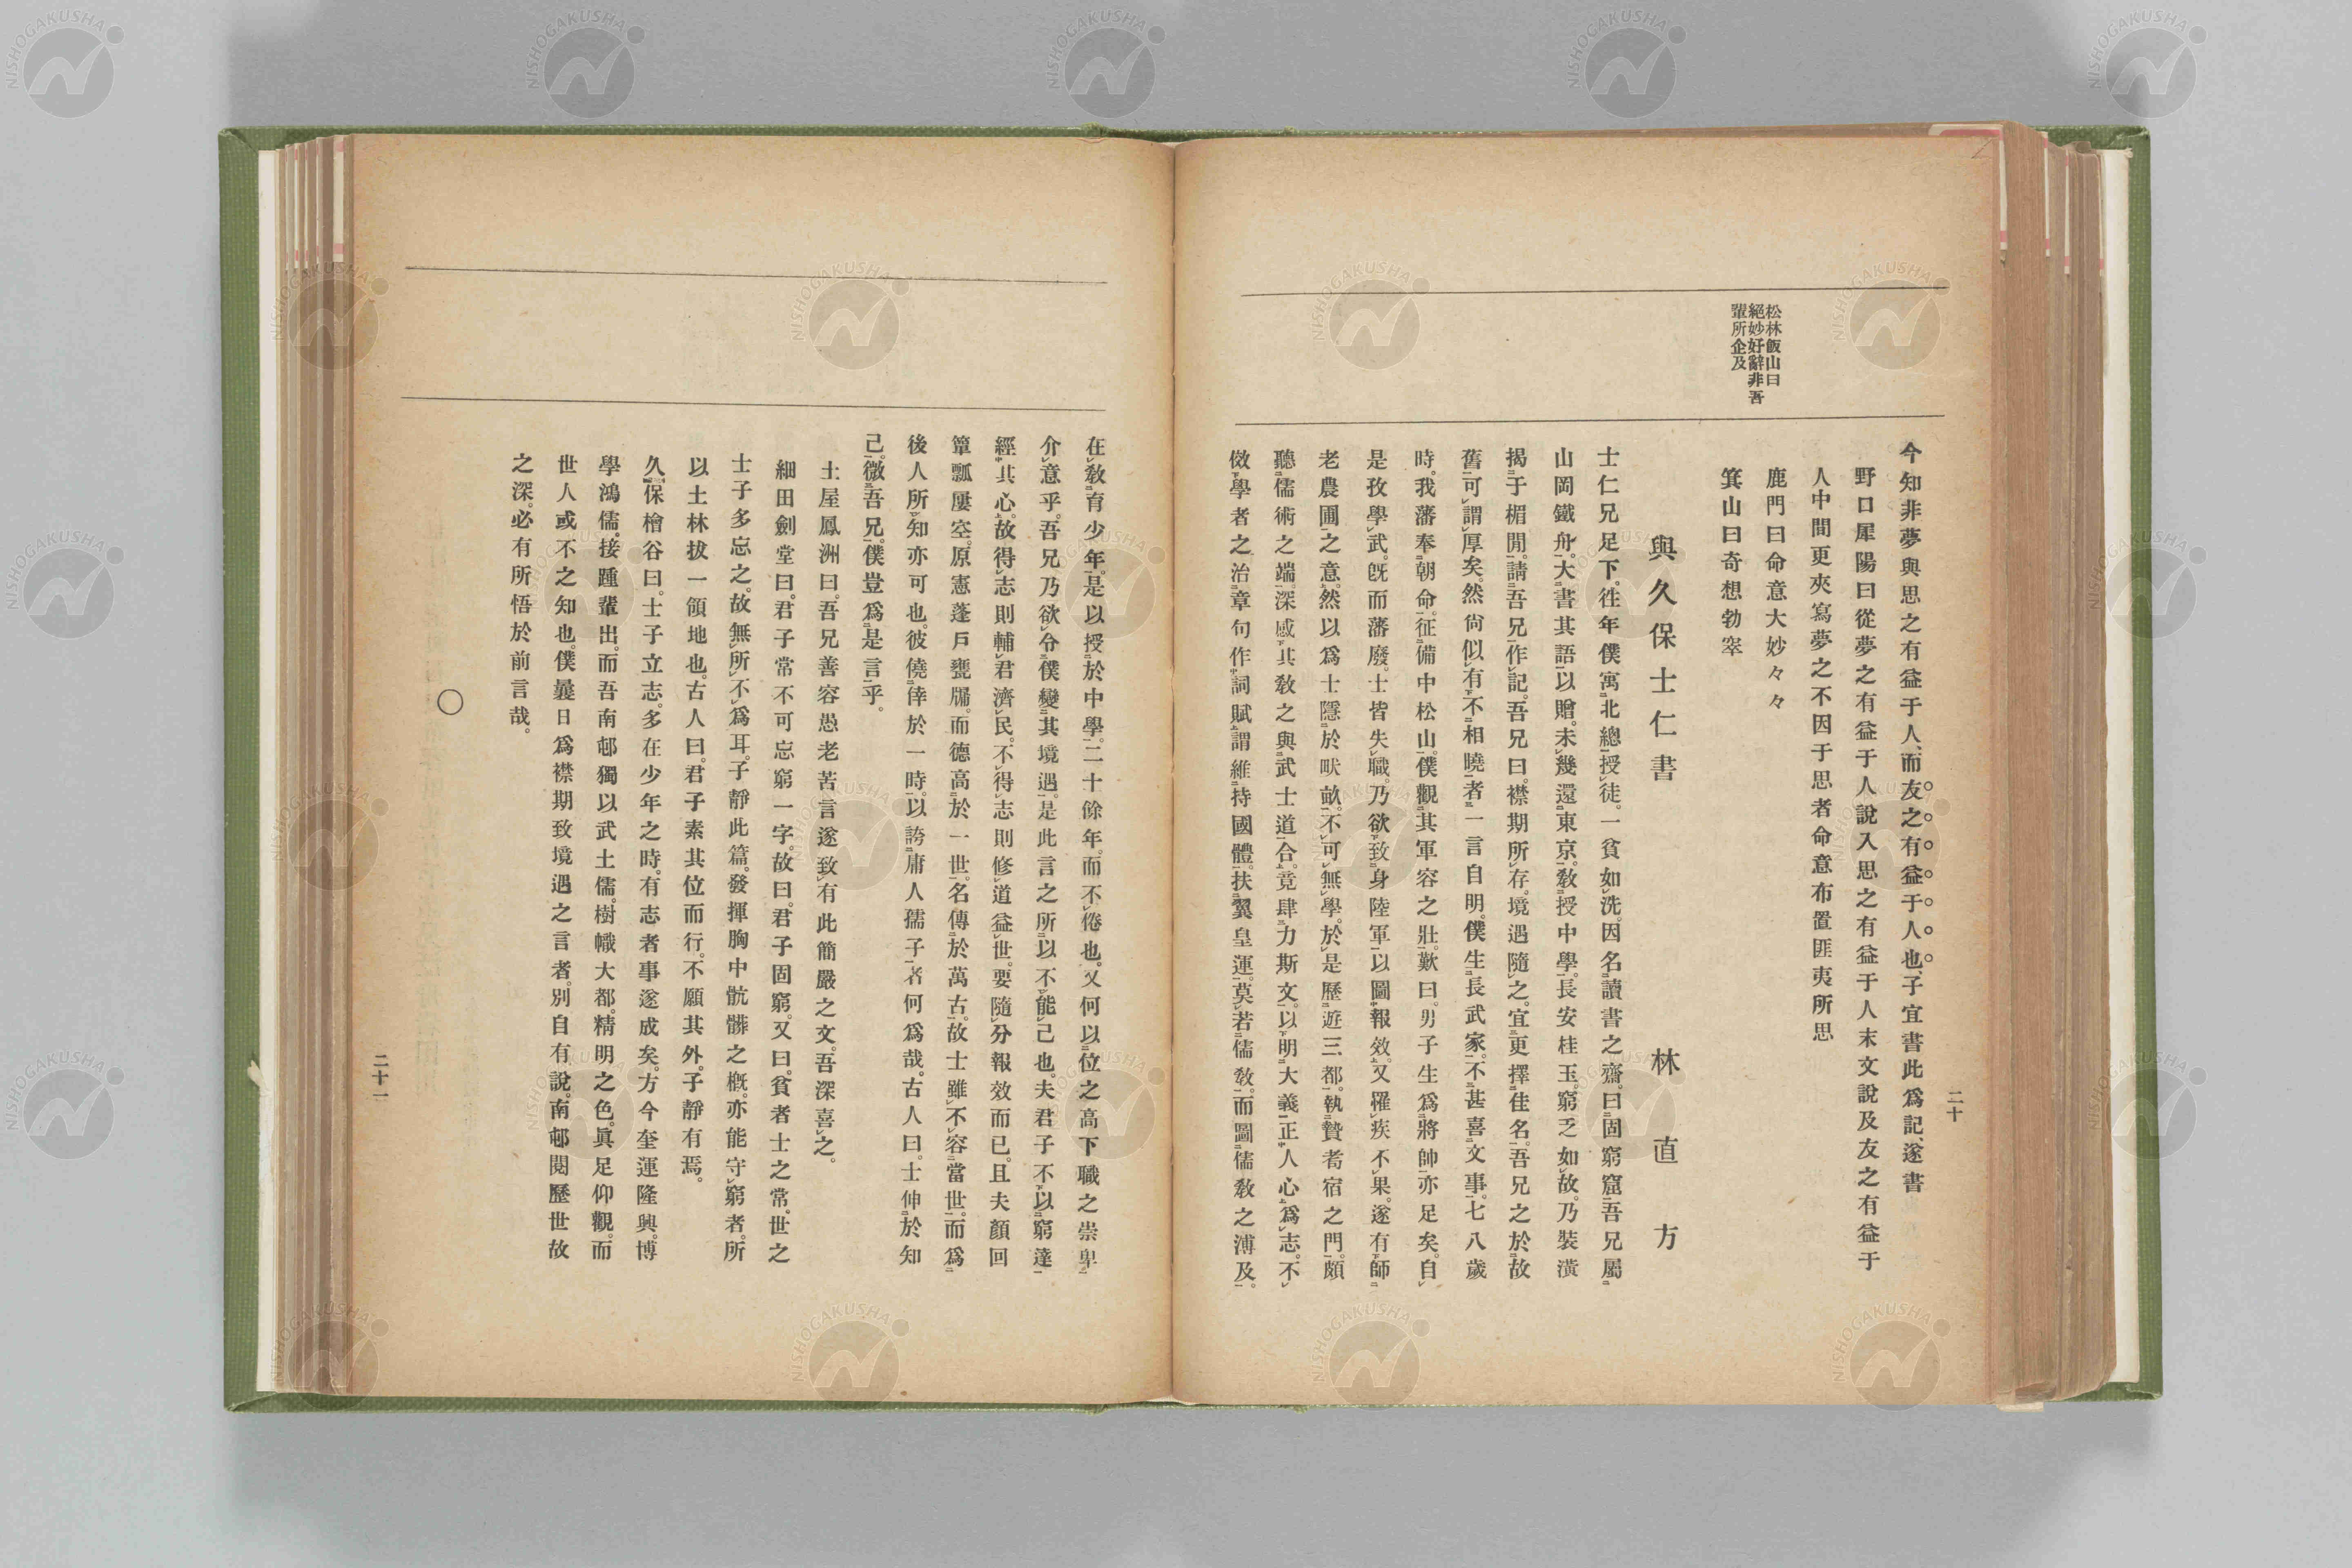 二十
松林飯山曰
絕妙好辭非吾
輩所企及
今知非夢與思之有益于人、而友之有益于人也、子宜書此爲記、遂書
野口犀陽曰從夢之有益于人說入思之有益于人末文說及友之有益于
人中間更夾寫夢之不因于思者命意布置匪夷所思
鹿門曰命意大妙々々
箕山曰奇想勃窣
與久保士仁書　林直方
士仁兄足下。往年僕寓北總授徒。一貧如洗。因名讀書之齋。曰固窮窟吾兄屬
山岡鐵舟。大書其語以贈。未幾還東京。敎授中學。長安桂玉。窮乏如故。乃裝潢
揭于楣間。請吾兄作記。吾兄曰。襟期所存。境遇隨之。宜更擇佳名。吾兄之於故
舊可謂厚矣。然尙似有不相曉者一言自明。僕生長武家。不甚喜文事。七八歲
時。我藩奉朝命。征備中松山。僕觀其軍容之壯。歎曰。男子生爲將帥亦足矣。自
是孜學武。旣而藩廢。士皆失職。乃欲致身陸軍以圖報效。又罹疾不果。遂有師
老農圃之意。然以爲士隱於畎畝。不可無學。於是歷遊三都。執贄耆宿之門。頗
聽儒術之端。深感其敎之與武士道合。竟肆力斯文。以明大義正人心爲志。不
傚學者之治章句作詞賦謂維持國體。扶翼皇運。莫若儒敎。而圖儒敎之溥及。
在敎育少年。是以授於中學。二十餘年。而不倦也。又何以位之高下職之崇卑
介意乎。吾兄乃欲令僕變其境遇。是此言之所以不能已也。夫君子不以窮達
經其心。故得志則輔君濟民。不得志則修道益世。要隨分報效而已。且夫顏回
簞瓢屢空。原憲蓬戶甕牖。而德高於一世。名傳於萬古。故士雖不容當世。而爲
後人所知亦可也。彼僥倖於一時。以誇庸人孺子者何爲哉。古人曰。士伸於知
己。微吾兄。僕豈爲是言乎。
土屋鳳洲曰。吾兄善容愚老苦言遂致有此簡嚴之文。吾深喜之。
細田劍堂曰。君子常不可忘窮一字。故曰。君子固窮。又曰。貧者士之常。世之
士子多忘之。故無所不爲耳。子靜此篇。發揮胸中骯髒之槪。亦能守窮者。所
以士林拔一領地也。古人曰。君子素其位而行。不願其外。子靜有焉。
久保檜谷曰。士子立志。多在少年之時。有志者事遂成矣。方今奎運隆興。博
學鴻儒。接踵輩出。而吾南邨獨以武士儒。樹幟大都。精明之色。眞足仰觀。而
世人或不之知也。僕曩日爲襟期致境遇之言者。別自有說。南邨閱歷世故
之深。必有所悟於前言哉。
○
二十一
NISHOGAKUSHA